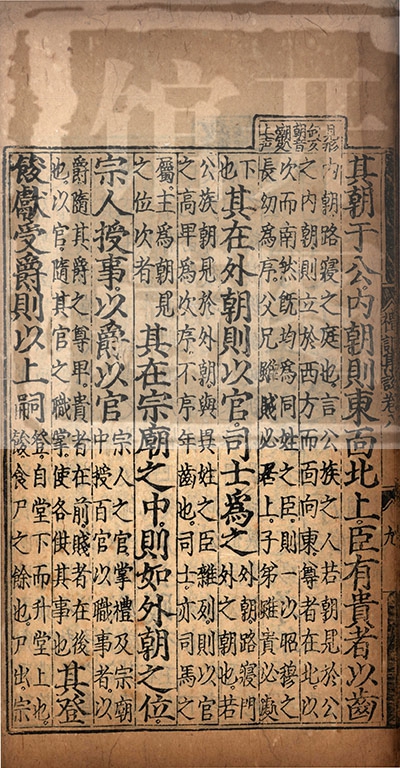 見形甸反朝音潮處上声
其朝于公内朝則東面北上臣有貴者以齒
内朝路寢之庭也言公族之人若朝見於公
之内朝則立於西方而面向東尊者在北以
次而南然旣均爲同姓之臣則一以昭穆之
長幼爲序父兄雖賤必居上子弟雖貴必處
下也其在外朝則以官司士爲之外朝路寢門之外之朝也若
公族朝見於外朝與異姓之臣雜列則以官
之高卑爲次序不序年齒也司士亦司馬之
屬主爲朝之位次者其在宗廟之中則如外朝之位
宗人授事以爵以官宗人之官掌禮及宗廟中授百官以職事者以
爵隨其爵之尊卑貴者在前賤者在後
也以官隨其官之職掌使各供其事也其登
餕獻受爵則以上嗣登自堂下而升堂上也餕食尸之餘也尸出宗
九